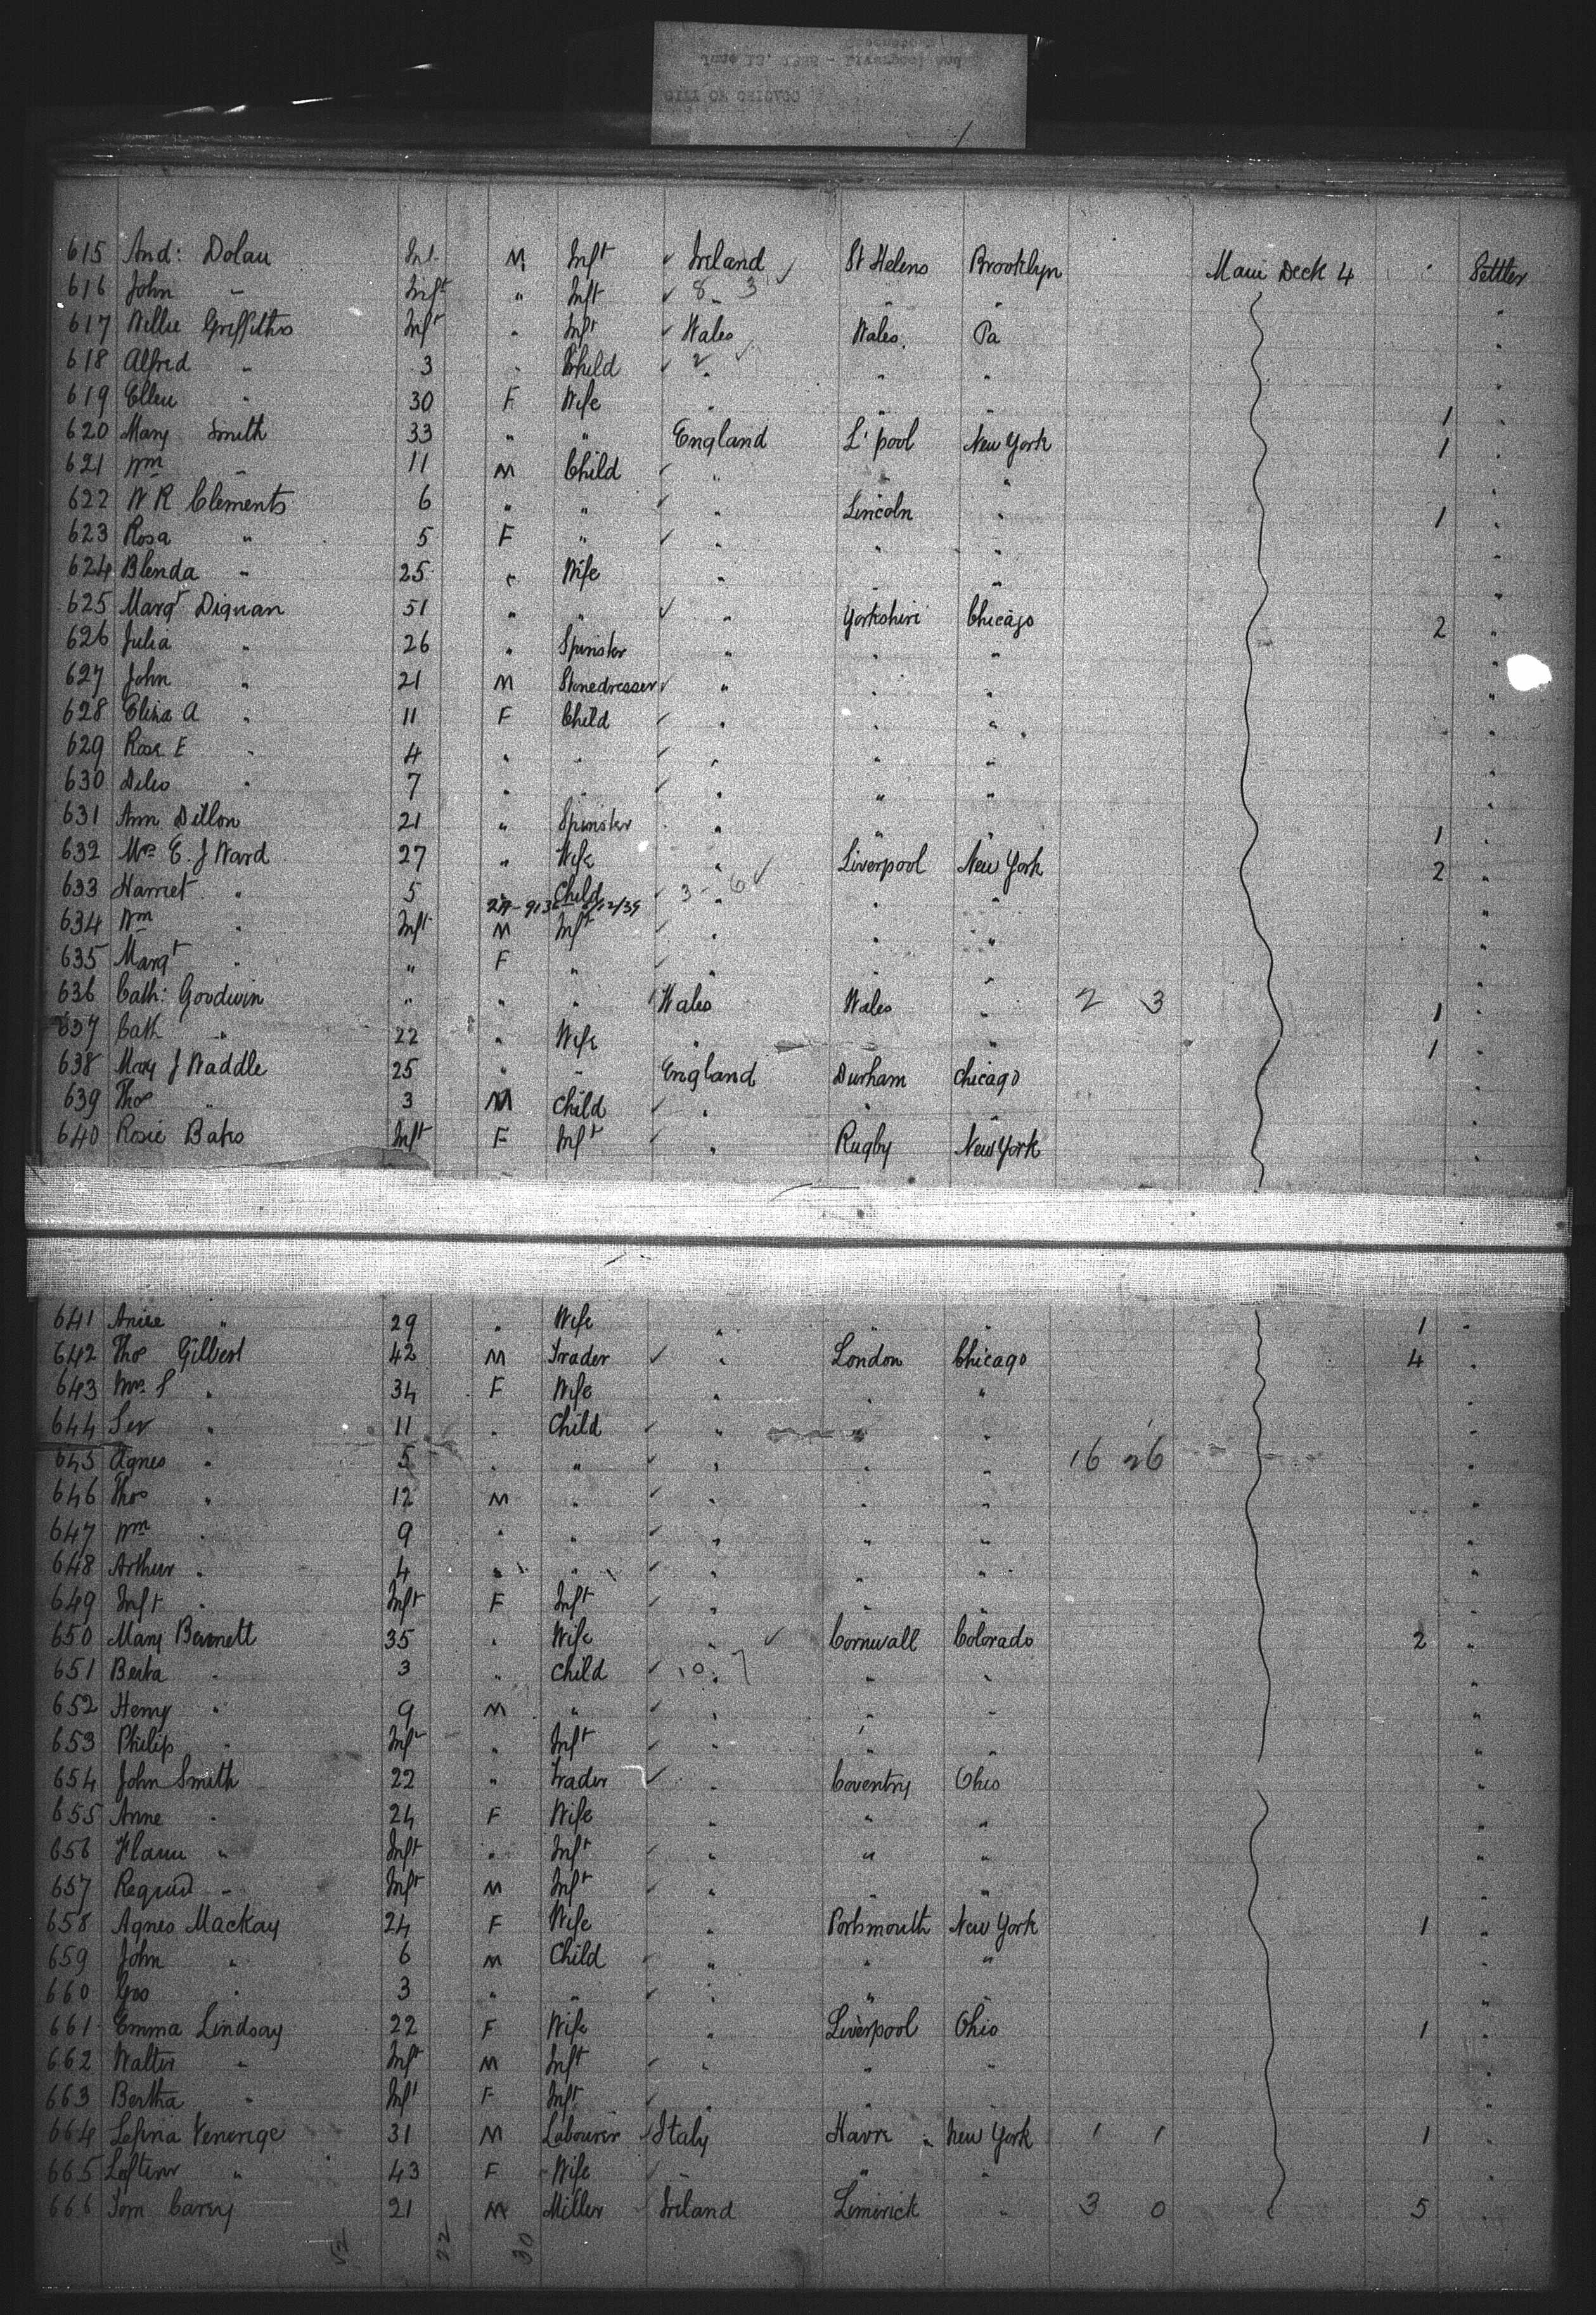 CITY OF CHICAGO
June 13, 1888 - Liverpool and
615 And: Dolan Inf. M Inft ✓ Ireland ✓ St Helens Brooklyn Main Deck 4 Settler
616 John " Inft " Inft ✓ 8 3 " " "
617 Willie Griffiths Inft " Inft ✓ Wales Wales Pa "
618 Alfred " 3 " Child ✓ 2 ✓ " " " "
619 Ellen " 30 F Wife " " " 1 "
620 Mary Smith 33 " " England L'pool New York 1 "
621 Wm " 11 M Child ✓ " " " "
622 W R Clements 6 " " ✓ " Lincoln " 1 "
623 Rosa " 5 F " ✓ " " " "
624 Blenda " 25 " Wife " " " "
625 Margt Dignan 51 " " ✓ " Yorkshire Chicago 2 "
626 Julia " 26 " Spinster " " " "
627 John " 21 M Stonedresser ✓ " " " "
628 Eliza A " 11 F Child ✓ " " " "
629 Rose E " 4 " " ✓ " " " "
630 " 7 " " ✓ " " " "
631 Ann Dillon 21 " Spinster " " " 1 "
632 Mrs E. J Ward 27 " Wife " Liverpool New York 2 "
633 Harriet " 5 " Child ✓ 3 - 6 ✓ " " " "
634 Wm " Inft M Inft ✓ " " " "
635 Margt " " F " ✓ " " " "
636 Cath: Goodwin " " " Wales Wales " 2 3 1 "
637 Cath " 22 " Wife " " " 1 "
638 Mary J Waddle 25 " " England Durham Chicago "
639 Thos " 3 M Child ✓ " " " "
640 Rosie Bates Inft F Inft ✓ " Rugby New York "
641 Annie " 29 " Wife " " " 1 "
642 Thos Gilbert 42 M Trader ✓ " London Chicago 4 "
643 Mrs S " 34 F Wife " " " "
644 " 11 " Child ✓ " " " "
645 Agnes " 5 " " ✓ " " " 16 26 "
646 Thos " 12 M " ✓ " " " "
647 Wm " 9 " " ✓ " " " "
648 Arthur " 4 " " ✓ " " " "
649 Inft " Inft F Inft ✓ " " " "
650 Mary Bennett 35 " Wife " ✓ Cornwall Colorado 2 "
651 Berta " 3 " Child ✓ 10 7 " " "
652 Henry " 9 M " ✓ " " " "
653 Philip " Inft " Inft ✓ " " " "
654 John Smith 22 " Trader ✓ " Coventry Ohio "
655 Anne " 24 F Wife " " " "
656 " Inft " Inft ✓ " " " "
657 " Inft M Inft ✓ " " " "
658 Agnes Mackay 24 F Wife " Portsmouth New York 1 "
659 John " 6 M Child ✓ " " " "
660 Geo " 3 " " ✓ " " " "
661 Emma Lindsay 22 F Wife " Liverpool Ohio 1 "
662 Walter " Inft M Inft ✓ " " " "
663 Bertha " Inft F Inft ✓ " " " "
664 31 M Labourer ✓ Italy Havre " New York 1 1 1 "
665 " 43 F Wife ✓ " " " "
666 Tom Carey 21 M Miller Ireland Limerick " 3 0 5 "
52 22 30